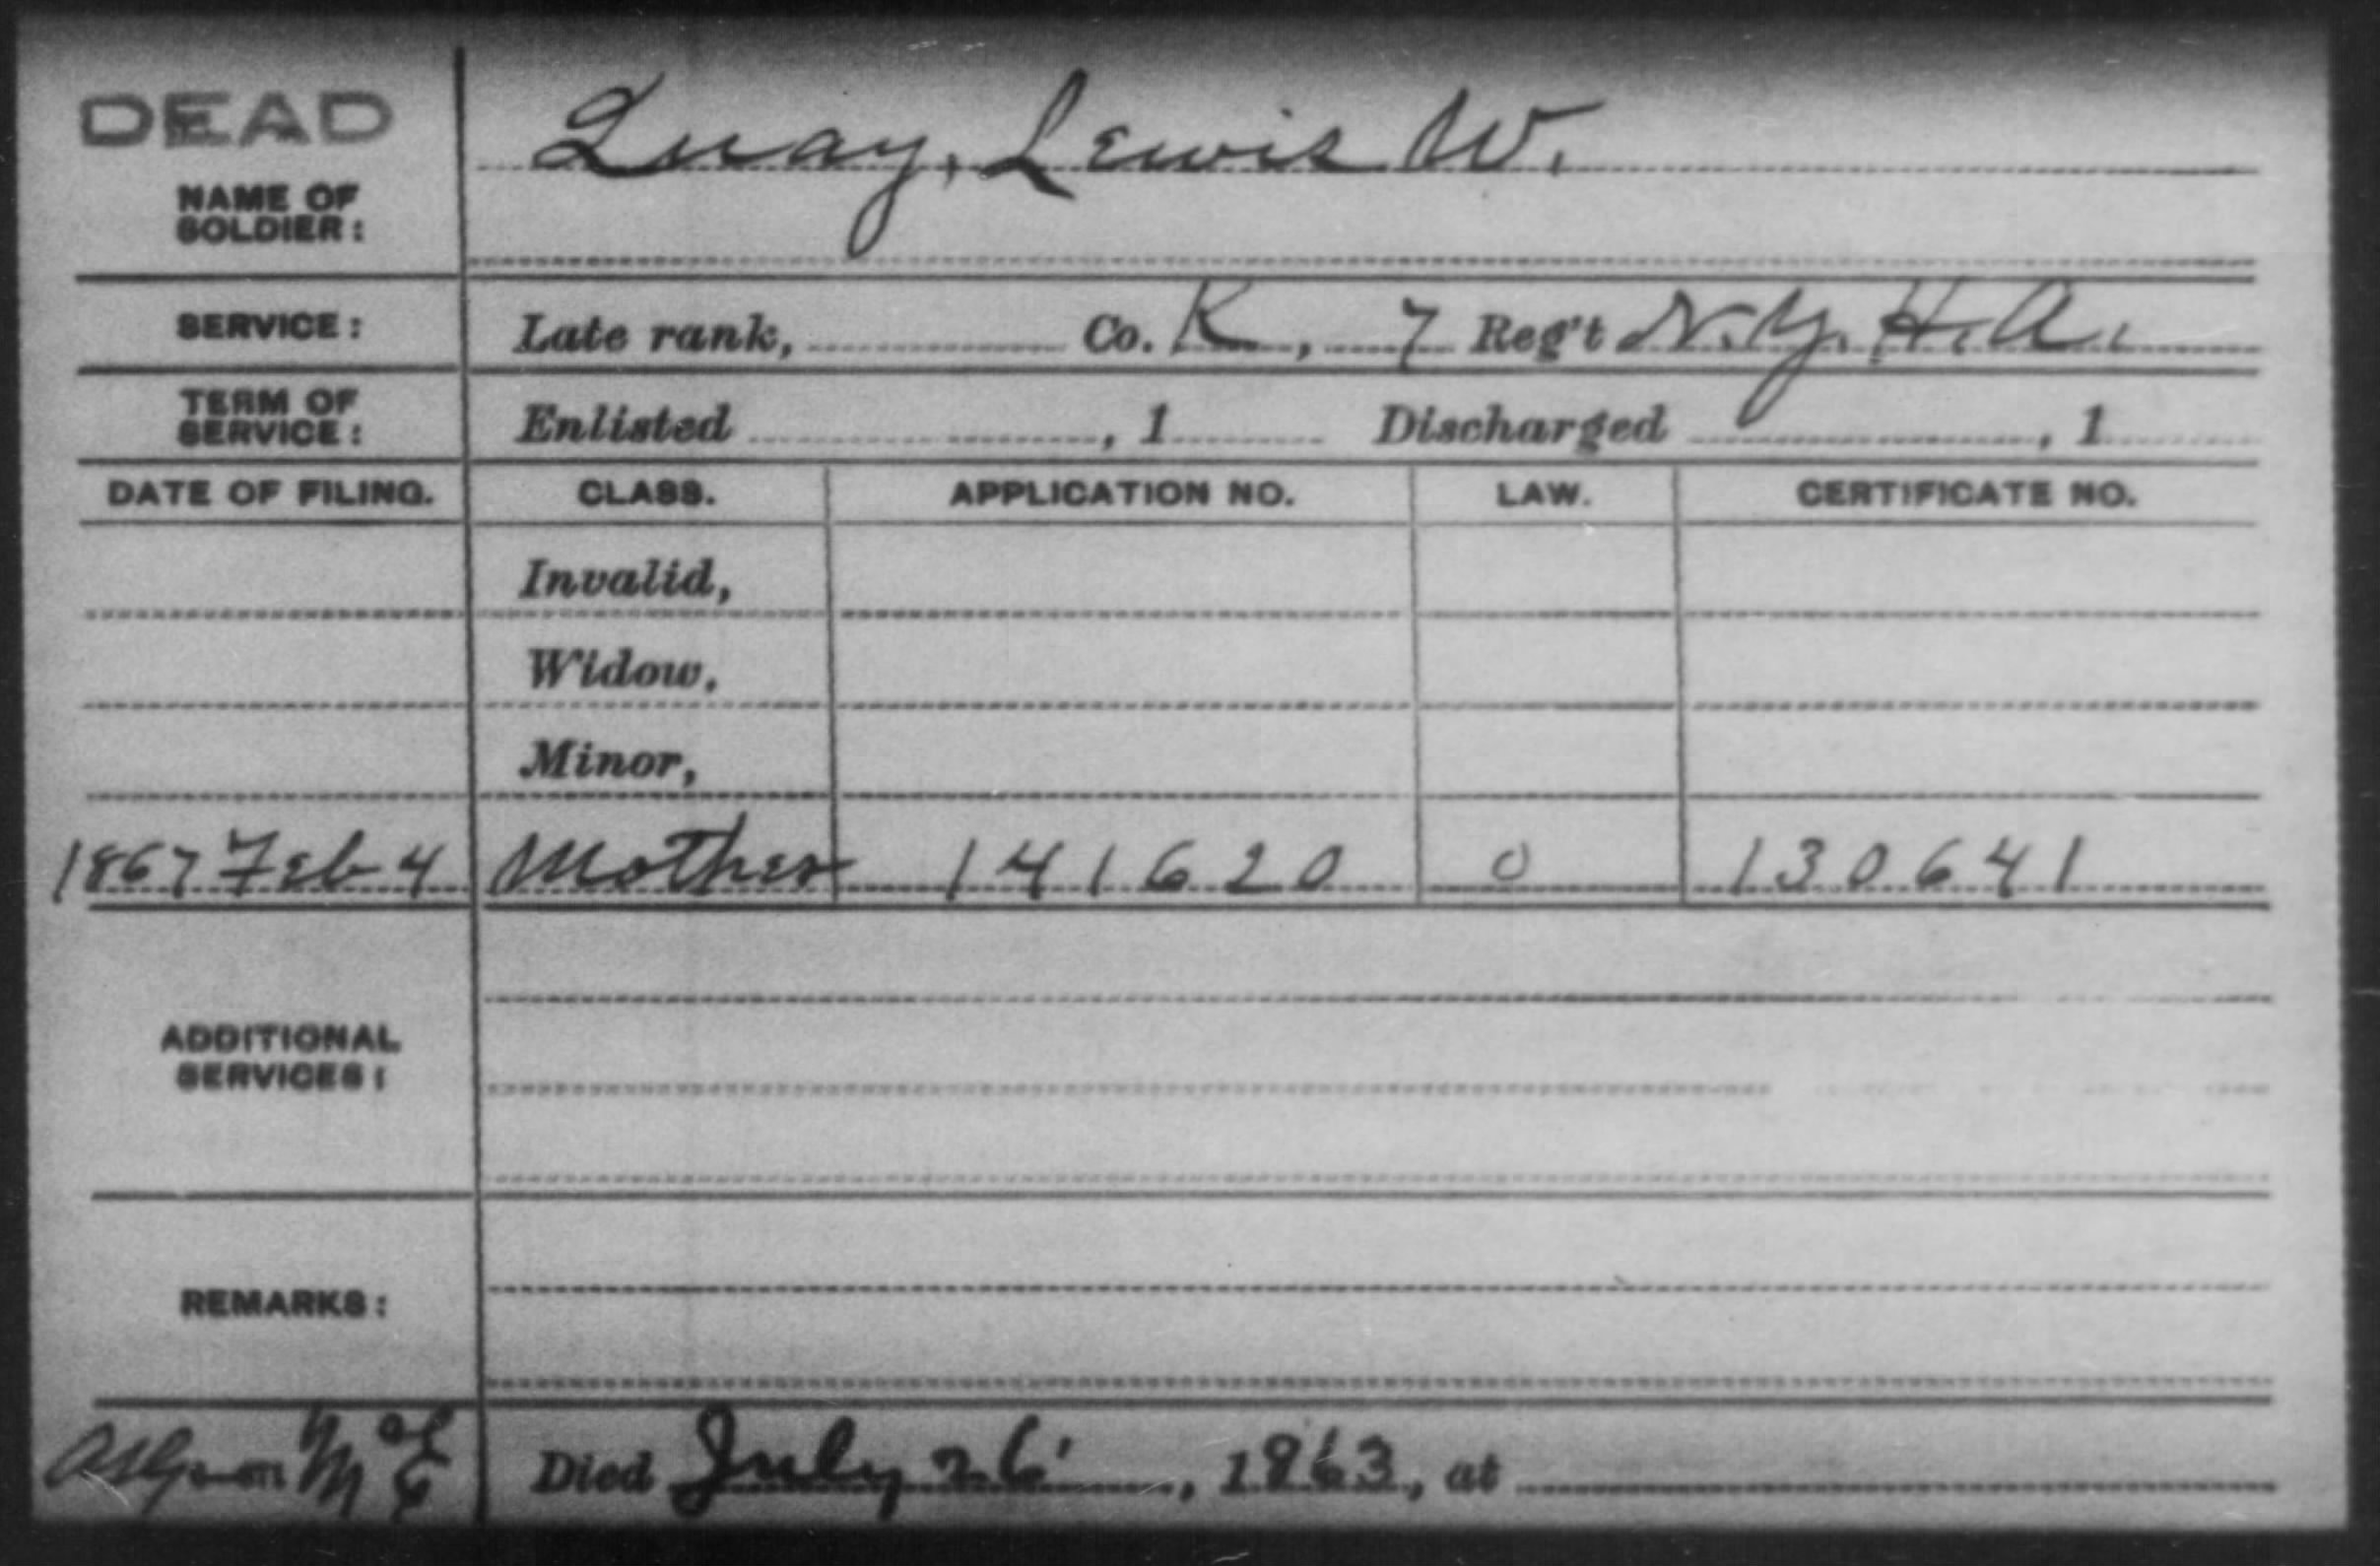 DEAD
Quay, Lewis W.
NAME OF
SOLDIER:
SERVICE: Late rank, Co. K, 7 Reg't N.Y. H.A.
TERM OF
SERVICE: Enlisted , 1 Discharged , 1
DATE OF FILING. CLASS. APPLICATION NO. LAW. CERTIFICATE NO.
Invalid,
Widow,
Minor,
1867 Feb 4 Mother 141620 0 130641
ADDITIONAL
SERVICES:
REMARKS:
Died July 26, 1863, at